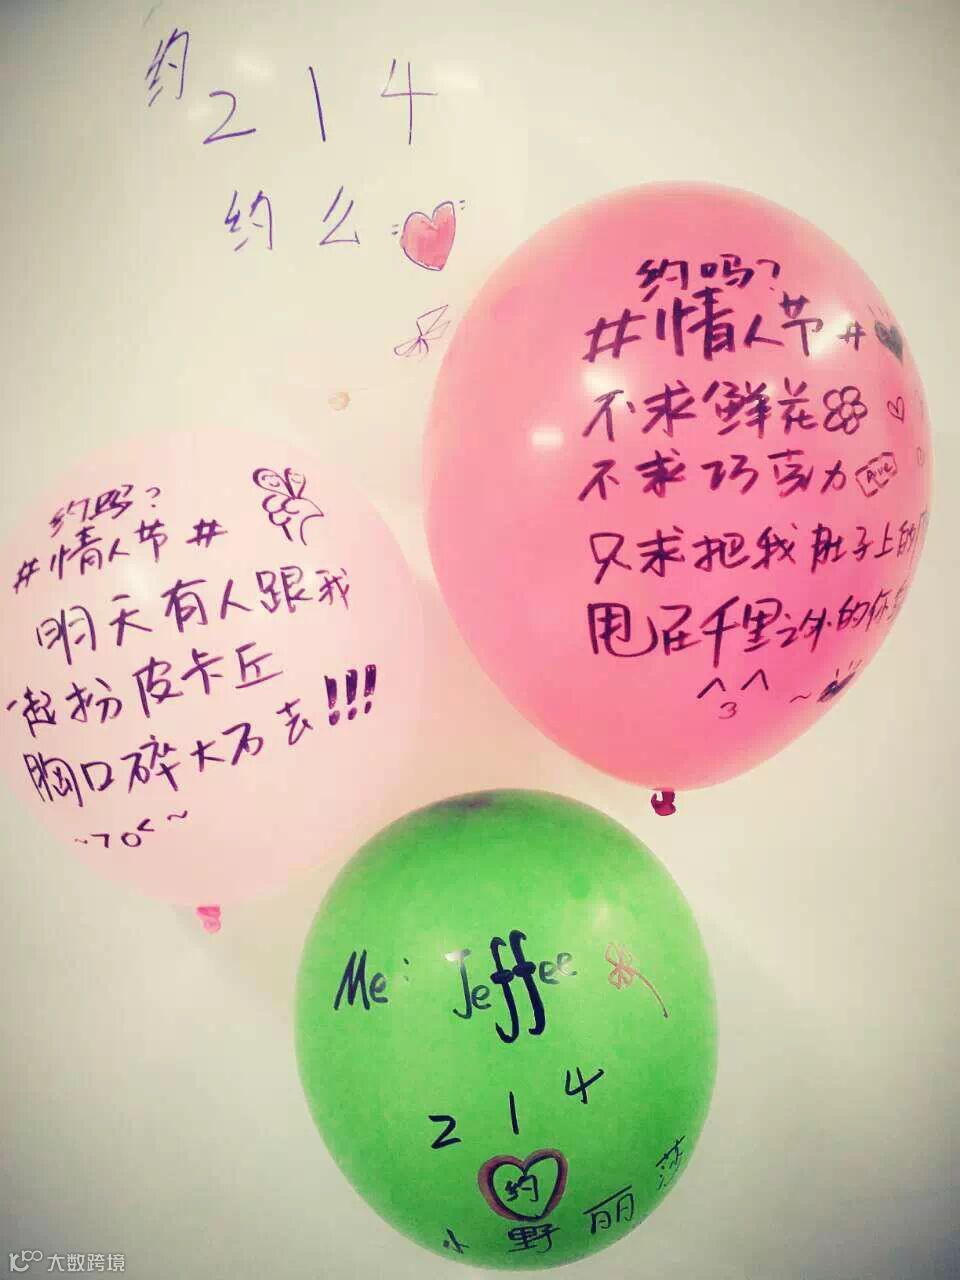 约
214
约么
约吗?
#情人节#
不求鲜花
不求巧克力
只求把我肚子上的
甩在千里之外的你
^3^~
约吗?
#情人节#
明天有人跟我
一起扮皮卡丘
胸口碎大石去!!!
Me: Jeffee
214
约
小野丽莎
大数跨境